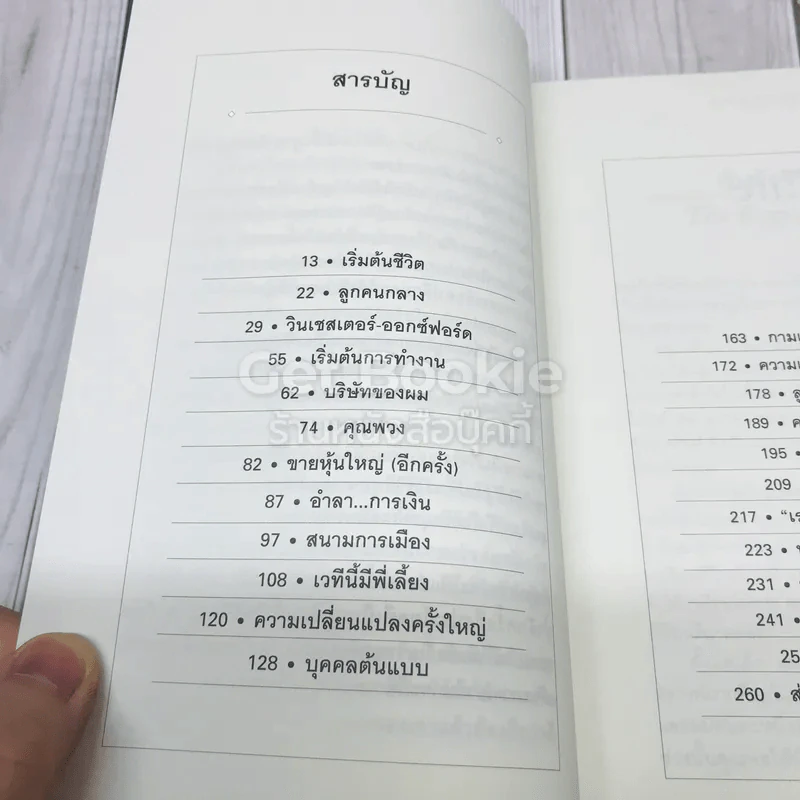 สารบัญ
13 • เริ่มต้นชีวิต
22 • ลูกคนกลาง
29 • วินเชสเตอร์-ออกซ์ฟอร์ด
55 • เริ่มต้นการทำงาน
62 • บริษัทของผม
74 • คุณพวง
82 • ขายหุ้นใหญ่ (อีกครั้ง)
87 • อำลา...การเงิน
97 • สนามการเมือง
108 • เวทีนี้มีพี่เลี้ยง
120 • ความเปลี่ยนแปลงครั้งใหญ่
128 • บุคคลต้นแบบ
Get Bookie
ร้านหนังสือบุ๊คกี้
163 •
172 •
178 •
189 •
195 •
209
217 •
223 •
231 •
241 •
25
260 •